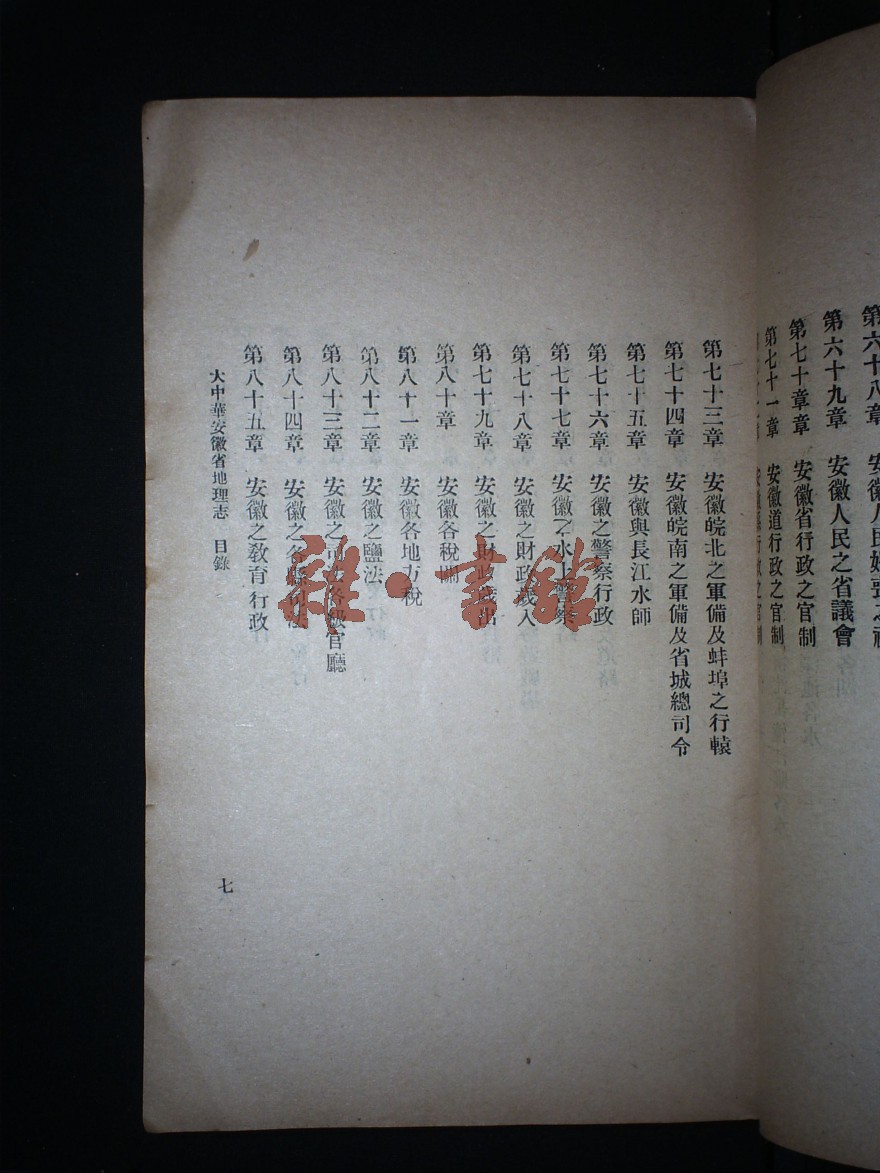 第六十八章　安徽人民婚喪之
第六十九章　安徽人民之省議會
第七十章章　安徽省行政之官制
第七十一章　安徽道行政之官制
第七十三章　安徽皖北之軍備及蚌埠之行轅
第七十四章　安徽皖南之軍備及省城總司令
第七十五章　安徽與長江水師
第七十六章　安徽之警察行政
第七十七章　安徽之水上警察
第七十八章　安徽之財政歲入
第七十九章　安徽之財政歲出
第八十章　安徽各稅關
第八十一章　安徽各地方稅
第八十二章　安徽之鹽法
第八十三章　安徽之司法各級官廳
第八十四章　安徽之各縣司法
第八十五章　安徽之教育行政
大中華安徽省地理志　目錄
七
雜·書館